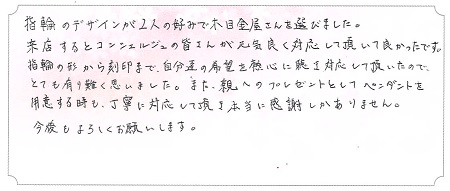 指輪のデザインが2人の好みで木目金屋さんを選びました。
来店するとコンシェルジュの皆さんが元気良く対応して頂いて良かったです。
指輪の形から刻印まで、自分達の希望を熱心に聴き対応して頂いたので、
とても有り難く思いました。また、親へのプレゼントとしてペンダントを
用意する時も、丁寧に対応して頂き本当に感謝しかありません。
今後もよろしくお願いします。